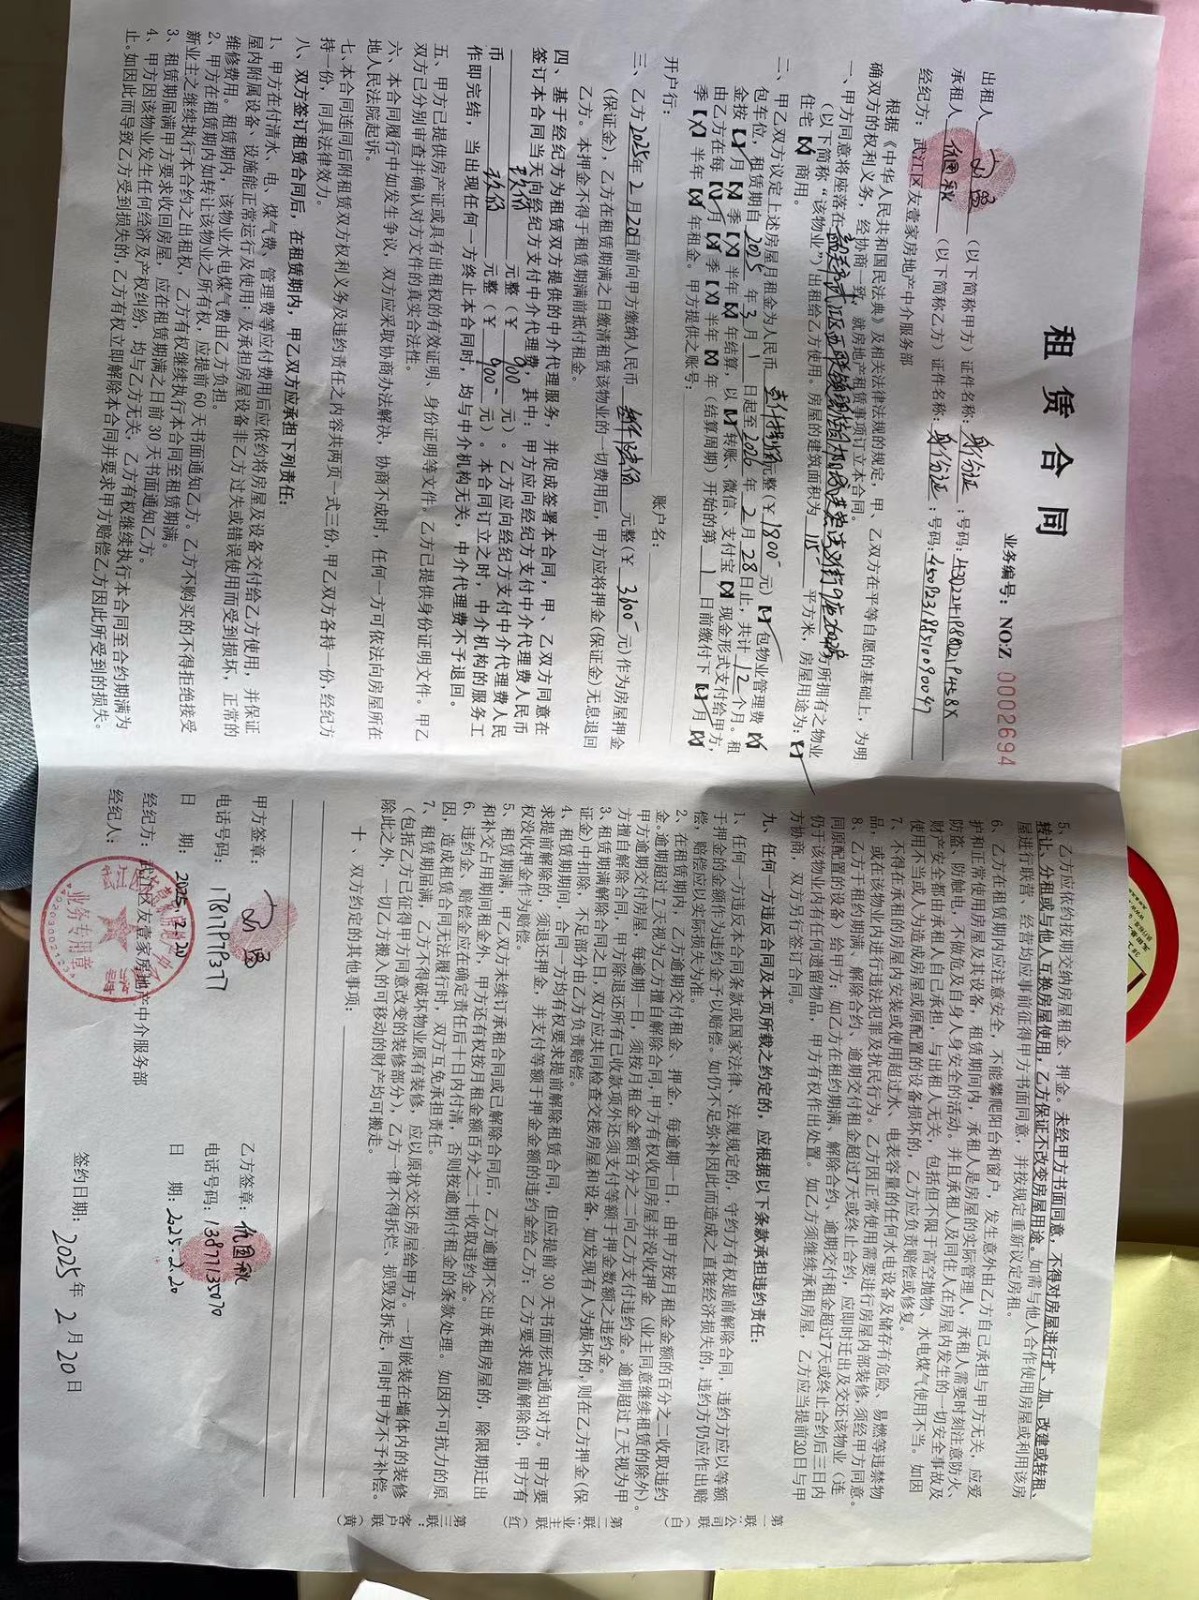 租赁合同
业务编号：NO:Z 0002694
出租人 （以下简称甲方）证件名称：身份证 ；号码：
承租人 （以下简称乙方）证件名称：身份证 ；号码：
经纪方：武江区友壹家房地产中介服务部
根据《中华人民共和国民法典》及相关法律法规的规定，甲、乙双方在平等自愿的基础上，为明
确双方的权利义务，经协商一致，就房地产租赁事项订立本合同。
一、甲方同意将座落在 所拥有之物业
（以下简称“该物业”）出租给乙方使用。房屋的建筑面积为 115 平方米，房屋用途为：
住宅 商用。
二、甲乙双方议定上述房屋月租金为人民币 元整（￥1800 元） 包物业管理费
包车位，租赁期自 2025 年 3 月 1 日起至 2026 年 2 月 28 日止，共计 12 个月。租
金按 月 季 半年 年结算，以 转账、微信、支付宝 现金形式支付给甲方，
由乙方在每 月 季 半年 年（结算周期）开始的第 1 日前缴付下 月
季 半年 年租金。甲方提供之账号：
开户行： 账户名：
三、乙方2025年2月20日前向甲方缴纳人民币 元整（￥ 3600 元）作为房屋押金
（保证金），乙方在租赁期满之日缴清租赁该物业的一切费用后，甲方应将押金（保证金）无息退回
乙方。本押金不得于租赁期满前抵付租金。
四、基于经纪方为租赁双方提供的中介代理服务，并促成签署本合同，甲、乙双方同意在
签订本合同当天向经纪方支付中介代理费，其中：甲方应向经纪方支付中介代理费人民币
玖佰 元整（￥ 900 元）。乙方应向经纪方支付中介代理费人民
币 玖佰 元整（￥ 900 元）。本合同订立之时，中介机构的服务工
作即完结，当出现任何一方终止本合同时，均与中介机构无关，中介代理费不予退回。
五、甲方已提供房产证或具有出租权的有效证明、身份证明等文件。乙方已提供身份证明文件。甲乙
双方已分别审查并确认对方文件的真实合法性。
六、本合同履行中如发生争议，双方应采取协商办法解决，协商不成时，任何一方可依法向房屋所在
地人民法院起诉。
七、本合同连同后附租赁双方权利义务及违约责任之内容共两页一式三份，甲乙双方各持一份，经纪方
持一份，同具法律效力。
八、双方签订租赁合同后，在租赁期内，甲乙双方应承担下列责任：
1、甲方在付清水、电、煤气费、管理费等应付费用后应依约将房屋及设备交付给乙方使用，并保证
屋内附属设备、设施能正常运行及使用；及承担房屋设备非乙方过失或错误使用而受到损坏，正常的
维修费用。租赁期内，该物业水电煤气费由乙方负担。
2、甲方在租赁期内如转让该物业之所有权，应提前60天书面通知乙方。乙方不购买的不得拒绝接受
新业主之继续执行本合约之出租权，乙方有权继续执行本合同至租赁期满。
3、租赁期届满甲方要求收回房屋，应在租赁期满之日前30天书面通知乙方。
4、甲方因该物业发生任何经济及产权纠纷，均与乙方无关，乙方有权继续执行本合同至合约期满为
止。如因此而导致乙方受到损失的，乙方有权立即解除本合同并要求甲方赔偿乙方因此所受到的损失。
5、乙方应依约按期交纳房屋租金、押金。未经甲方书面同意，不得对房屋进行扩、加、改建或转租、
转让、分租或与他人互换房屋使用，乙方保证不改变房屋用途。如需与他人合作使用房屋或利用该房
屋进行联营、经营均应事前征得甲方书面同意，并按规定重新议定房租。
6、乙方在租赁期内应注意安全，不能攀爬阳台和窗户，发生意外由乙方自己承担与甲方无关，应爱
护和正常使用房屋及其设备，租赁期间内，承租人是房屋的实际管理人，承租人需要时刻注意防火、
防盗、防触电，不做危及自身人身安全的活动。并且承租人及同住人在房屋内发生的一切安全事故及
财产安全都由承租人自己承担，与出租人无关，包括但不限于高空抛物、水电煤气使用不当。如因
使用不当或人为造成房屋或原配置的设备损坏的，乙方应负责赔偿或修复。
7、不得在承租的房屋内安装或使用超过水、电表容量的任何水电设备及储存有危险、易燃等违禁物
品，或在该物业内进行违法犯罪及扰民行为。乙方因正常使用需要进行房屋内部装修，须经甲方同意。
8、乙方于租约期满、解除合约、逾期交付租金超过7天或终止合约，应即时迁出及交还该物业（连
同原配置的设备）给甲方；如乙方在租约期满、解除合约、逾期交付租金超过7天或终止合约后三日内
仍于该物业内有任何遗留物品，甲方有权作出处置。如乙方须继续承租房屋，乙方应当提前30日与甲
方协商，双方另行签订合同。
九、任何一方违反合同及本页所载之约定的，应根据以下条款承担违约责任：
1、任何一方违反本合同条款或国家法律、法规规定的，守约方有权提前解除合同，违约方应以等额
于押金的金额作为违约金予以赔偿。如仍不足弥补因此而造成之直接经济损失的，违约方仍应作出赔
偿，赔偿应以实际损失为准。
2、在租赁期内，乙方逾期交付租金、押金，每逾期一日，由甲方按月租金金额的百分之二收取违约
金。逾期超过7天视为乙方擅自解除合同，甲方有权收回房屋并没收押金（业主同意继续租赁的除外）。
甲方逾期交付房屋，每逾期一日，须按月租金金额百分之二向乙方支付违约金。逾期超过7天视为甲
方擅自解除合同，甲方除退还所有已收款项外还须支付等额于押金数额之违约金。
3、租赁期满解除合同之日，双方应共同检查交接房屋和设备，如发现有人为损坏的，则在乙方押金（保
证金）中扣除，不足部分由乙方负责赔偿。
4、租赁期期间，合同一方均有权要求提前解除租赁合同，但应提前30天书面形式通知对方。甲方要
求提前解除的，须退还押金，并支付等额于押金金额的违约金给乙方；乙方要求提前解除的，甲方有
权没收押金作为赔偿。
5、租赁期满，甲乙双方未续订承租合同或已解除合同后，乙方逾期不交出承租房屋的，除限期迁出
和补交占用期间租金外，甲方还有权按月租金额百分之二十收取违约金。
6、违约金、赔偿金应在确定责任后十日内付清，否则按逾期付租金的条款处理。如因不可抗力的原
因，造成租赁合同无法履行时，双方互免承担责任。
7、租赁期届满，乙方不得破坏物业原有装修，应以原状交还房屋给甲方。一切嵌装在墙体内的装修
（包括乙方已征得甲方同意改变的装修部分），乙方一律不得拆烂、损毁及拆走，同时甲方不予补偿。
除此之外，一切乙方搬入的可移动的财产均可搬走。
十、双方约定的其他事项：
第一联：公司联（白
第二联：业主联（红
第三联：客户联（黄
甲方签章： 乙方签章：
电话号码： 电话号码：13877135070
日 期：2025.2.20 日 期：2025.2.20
经纪方：武江区友壹家房地产中介服务部
经纪人： 签约日期：2025年2月20日
业务专用章